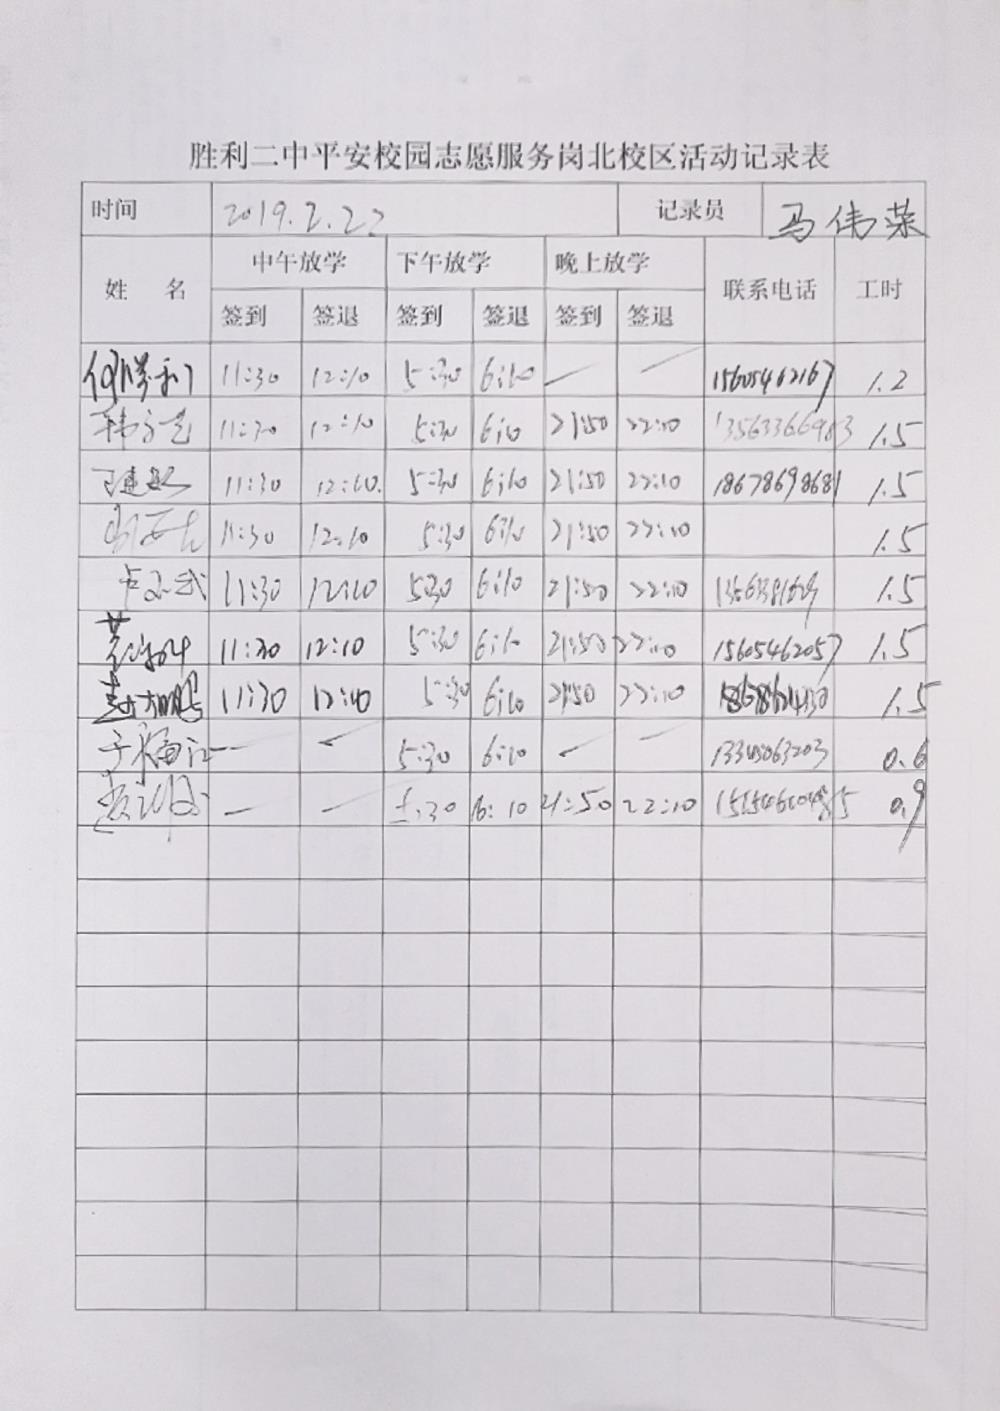 胜利二中平安校园志愿服务岗北校区活动记录表
时间 2019.2.22 记录员 马伟荣
姓 名 中午放学 下午放学 晚上放学 联系电话 工时
签到 签退 签到 签退 签到 签退
何胜利 11:30 12:10 5:30 6:10 — — 15605462167 1.2
11:30 12:10 5:30 6:10 21:50 22:10 1.5
11:30 12:10. 5:30 6:10 21:50 22:10 18678698681 1.5
11:30 12:10 5:30 6:10 21:50 22:10 1.5
11:30 12:10 5:30 6:10 21:50 22:10 1.5
11:30 12:10 5:30 6:10 21:50 22:10 15605462057 1.5
11:30 12:10 5:30 6:10 21:50 22:10 1.5
— — 5:30 6:10 — — 0.6
— — 5:30 6:10 21:50 22:10 0.9